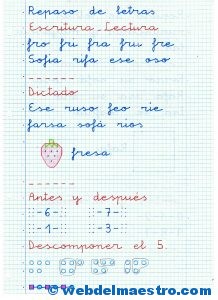 Repaso de letras
Escritura_Lectura
fro fri fra fru fre
Sofía rifa ese oso
Dictado
Ese ruso feo ríe
farsa sofá ríos
fresa
Antes y después
-6- -7-
-1- -3-
Descomponer el 5.
© webdelmaestro.com